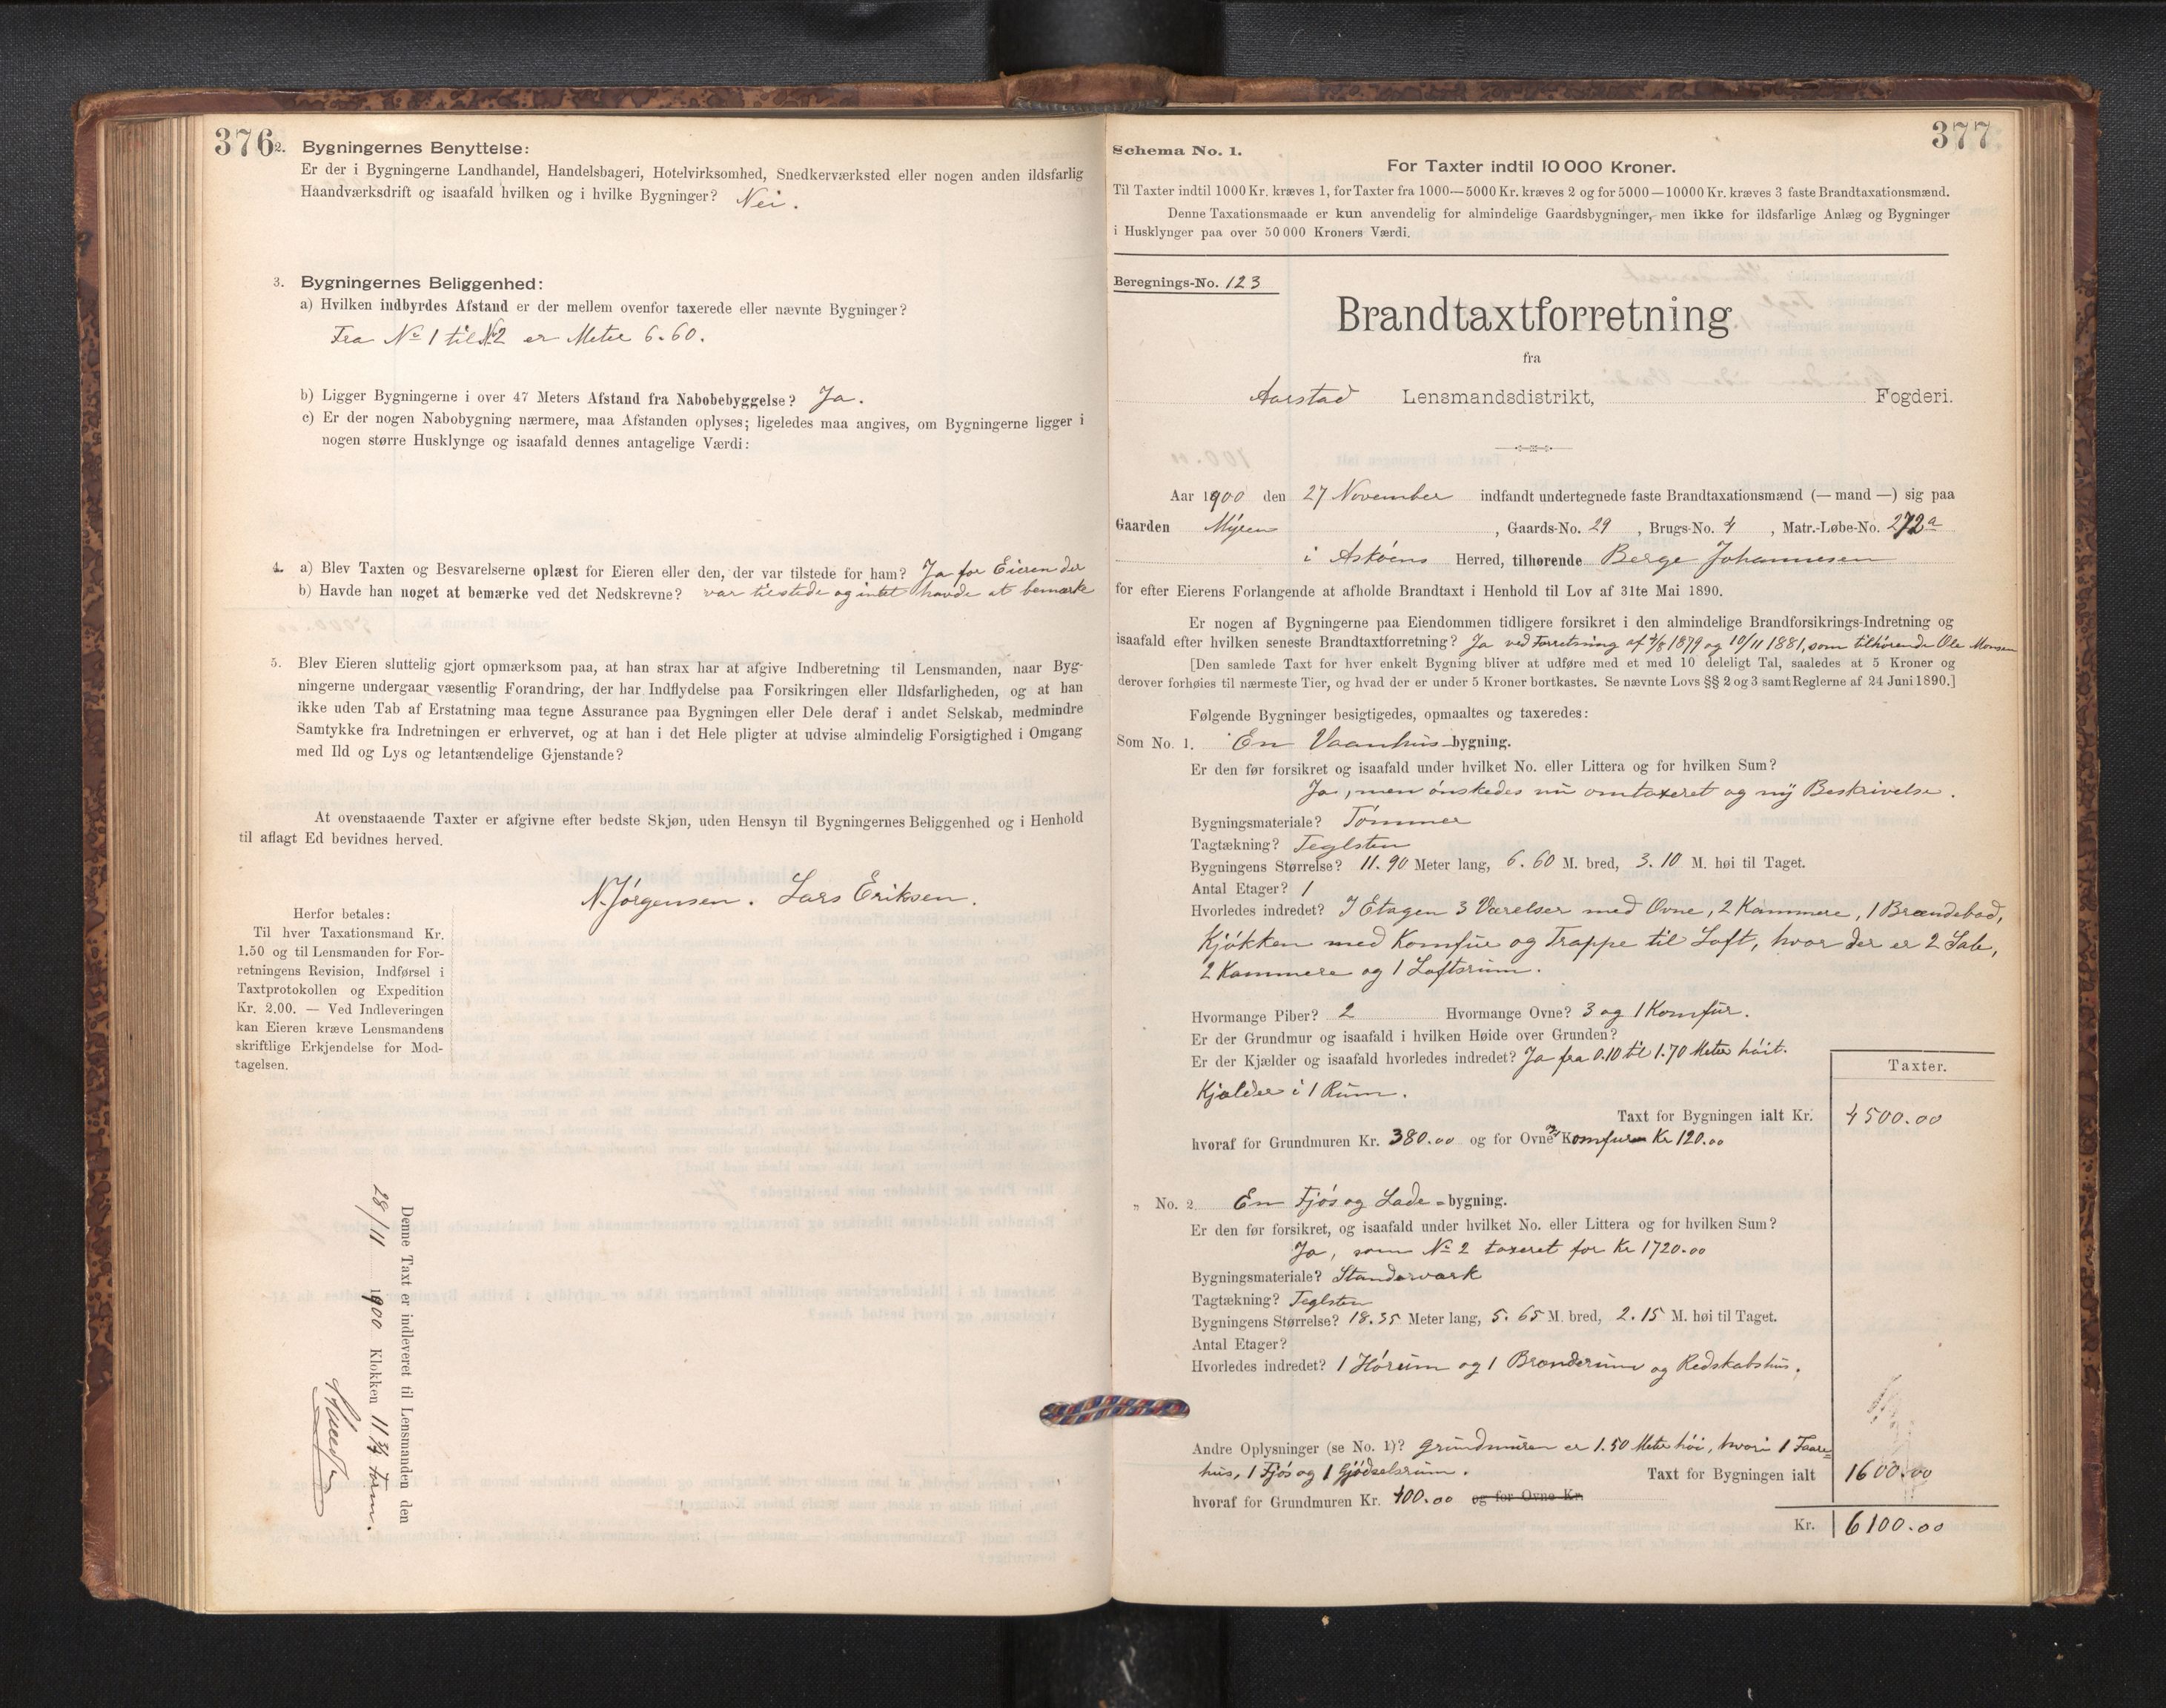 376
2. Bygningernes Benyttelse:
Er der i Bygningerne Landhandel, Handelsbageri, Hotelvirksomhed, Snedkerværksted eller nogen anden ildsfarlig
Haandværksdrift og isaafald hvilken og i hvilke Bygninger? Nei.
3. Bygningernes Beliggenhed:
a) Hvilken indbyrdes Afstand er der mellem ovenfor taxerede eller nævnte Bygninger?
Fra No 1 til No 2 er Meter 6.60.
b) Ligger Bygningerne i over 47 Meters Afstand fra Nabobebyggelse? Ja.
c) Er der nogen Nabobygning nærmere, maa Afstanden oplyses; ligeledes maa angives, om Bygningerne ligger i
nogen større Husklynge og isaafald dennes antagelige Værdi:
4. a) Blev Taxten og Besvarelserne oplæst for Eieren eller den, der var tilstede for ham? Ja for Eieren der
b) Havde han noget at bemærke ved det Nedskrevne? var tilstede og intet havde at bemærke
5. Blev Eieren sluttelig gjort opmærksom paa, at han strax har at afgive Indberetning til Lensmanden, naar Byg-
ningerne undergaar væsentlig Forandring, der har Indflydelse paa Forsikringen eller Ildsfarligheden, og at han
ikke uden Tab af Erstatning maa tegne Assurance paa Bygningen eller Dele deraf i andet Selskab, medmindre
Samtykke fra Indretningen er erhvervet, og at han i det Hele pligter at udvise almindelig Forsigtighed i Omgang
med Ild og Lys og letantændelige Gjenstande?
At ovenstaaende Taxter er afgivne efter bedste Skjøn, uden Hensyn til Bygningernes Beliggenhed og i Henhold
til aflagt Ed bevidnes herved.
N. Jørgensen. Lars Eriksen.
Herfor betales:
Til hver Taxationsmand Kr.
1.50 og til Lensmanden for For-
retningens Revision, Indførsel i
Taxtprotokollen og Expedition
Kr. 2.00. — Ved Indleveringen
kan Eieren kræve Lensmandens
skriftlige Erkjendelse for Mod-
tagelsen.
Denne Taxt er indleveret til Lensmanden den
28/11 1900 Klokken 11 1/2 Form.
377
Schema No. 1.
For Taxter indtil 10 000 Kroner.
Til Taxter indtil 1000 Kr. kræves 1, for Taxter fra 1000—5000 Kr. kræves 2 og for 5000—10000 Kr. kræves 3 faste Brandtaxationsmænd.
Denne Taxationsmaade er kun anvendelig for almindelige Gaardsbygninger, men ikke for ildsfarlige Anlæg og Bygninger
i Husklynger paa over 50 000 Kroners Værdi.
Beregnings-No. 123
Brandtaxtforretning
fra
Aarstad Lensmandsdistrikt, Fogderi.
Aar 1900 den 27 November indfandt undertegnede faste Brandtaxationsmænd (— mand —) sig paa
Gaarden Myren, Gaards-No. 29, Brugs-No. 4, Matr.-Løbe-No. 272a
i Askøens Herred, tilhørende Berge Johannesen
for efter Eierens Forlangende at afholde Brandtaxt i Henhold til Lov af 31te Mai 1890.
Er nogen af Bygningerne paa Eiendommen tidligere forsikret i den almindelige Brandforsikrings-Indretning og
isaafald efter hvilken seneste Brandtaxtforretning? Ja ved Forretning af 4/8 1879 og 10/11 1881, som tilhørende Ole Monsen
[Den samlede Taxt for hver enkelt Bygning bliver at udføre med et med 10 deleligt Tal, saaledes at 5 Kroner og
derover forhøies til nærmeste Tier, og hvad der er under 5 Kroner bortkastes. Se nævnte Lovs §§ 2 og 3 samt Reglerne af 24 Juni 1890.]
Følgende Bygninger besigtigedes, opmaaltes og taxeredes:
Som No. 1. En Vaanhus-bygning.
Er den før forsikret og isaafald under hvilket No. eller Littera og for hvilken Sum?
Ja, men ønskedes nu omtaxeret og ny Beskrivelse.
Bygningsmateriale? Tømmer
Tagtækning? Teglsten
Bygningens Størrelse? 11.90 Meter lang, 6.60 M. bred, 3.10 M. høi til Taget.
Antal Etager? 1
Hvorledes indredet? I Etagen 3 Værelser med Ovne, 2 Kammere, 1 Brændebod,
Kjøkken med Komfur og Trappe til Loft, hvor der er 2 Sale,
2 Kammere og 1 Loftsrum.
Hvormange Piber? 2 Hvormange Ovne? 3 og 1 Komfur.
Er der Grundmur og isaafald i hvilken Høide over Grunden?
Er der Kjælder og isaafald hvorledes indredet? Ja fra 0.10 til 1.70 Meter høit.
Kjælder i 1 Rum.
Taxter.
Taxt for Bygningen ialt Kr. 4500.00
hvoraf for Grundmuren Kr. 380.00 og for Ovne og Komfur Kr 120.00
„ No. 2 En Fjøs og Lade-bygning.
Er den før forsikret, og isaafald under hvilket No. eller Littera og for hvilken Sum?
Ja, som No 2 taxeret for Kr 1720.00
Bygningsmateriale? Standerværk
Tagtækning? Teglsten
Bygningens Størrelse? 18.35 Meter lang, 5.65 M. bred, 2.15 M. høi til Taget.
Antal Etager?
Hvorledes indredet? 1 Hørum og 1 Brænderum og Redskabshus.
Andre Oplysninger (se No. 1)? Grundmuren er 1.50 Meter høi, hvori 1 Faare=
hus, 1 Fjøs og 1 Gjødselsrum. Taxt for Bygningen ialt 1600.00
hvoraf for Grundmuren Kr. 400.00 og for Ovne Kr.
Kr. 6100.00